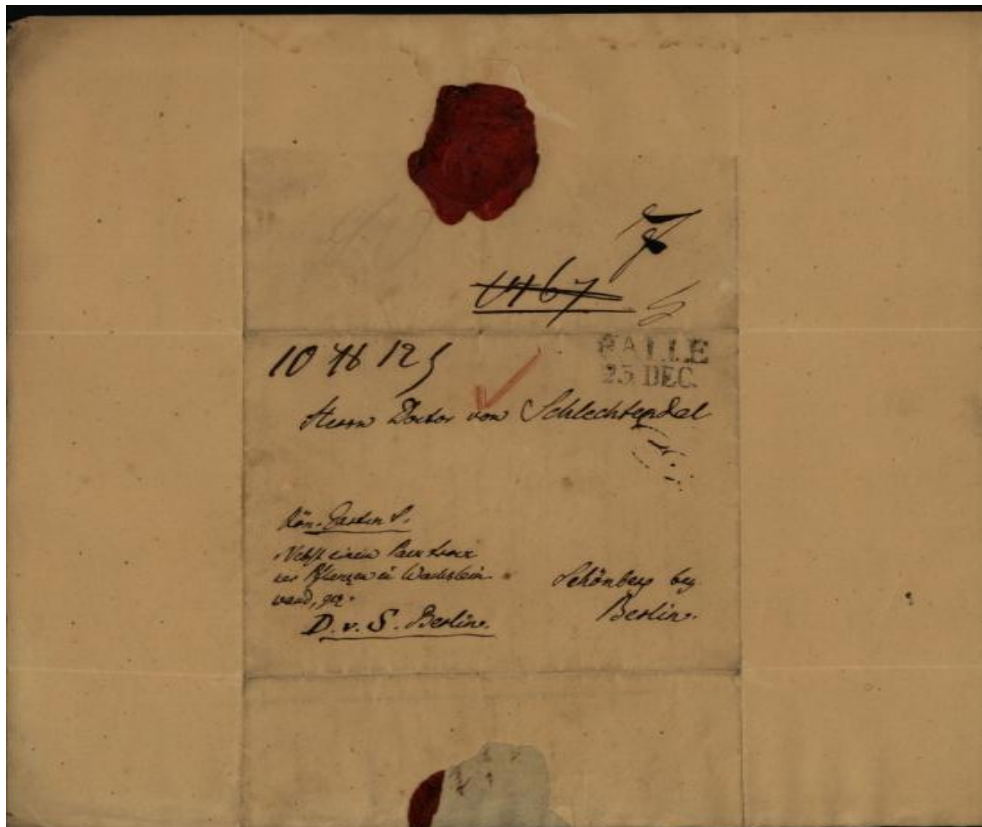 1467
HALLE
23. DEC.
10 12
Herrn Doctor von Schlechtendal
Kön. Garten
Nebst einem Pack
Pflanzen in Wachslein
wand, gez.
D. v. S. Berlin.
Schönberg bey
Berlin.